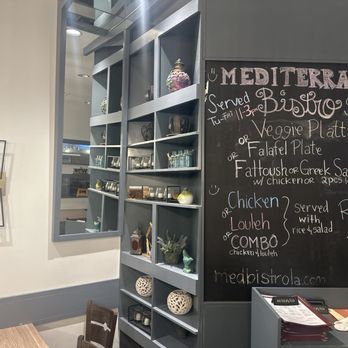 MEDITERRA
Served Bistro
Tu-Fri 11-3
Veggie Platt
or Falafel Plate
or Fattoush or Greek Sa
w/ chicken or 2pcs
or Chicken
or Louleh
or COMBO
chicken & louleh
served
with
rice & salad
medbistrola.com